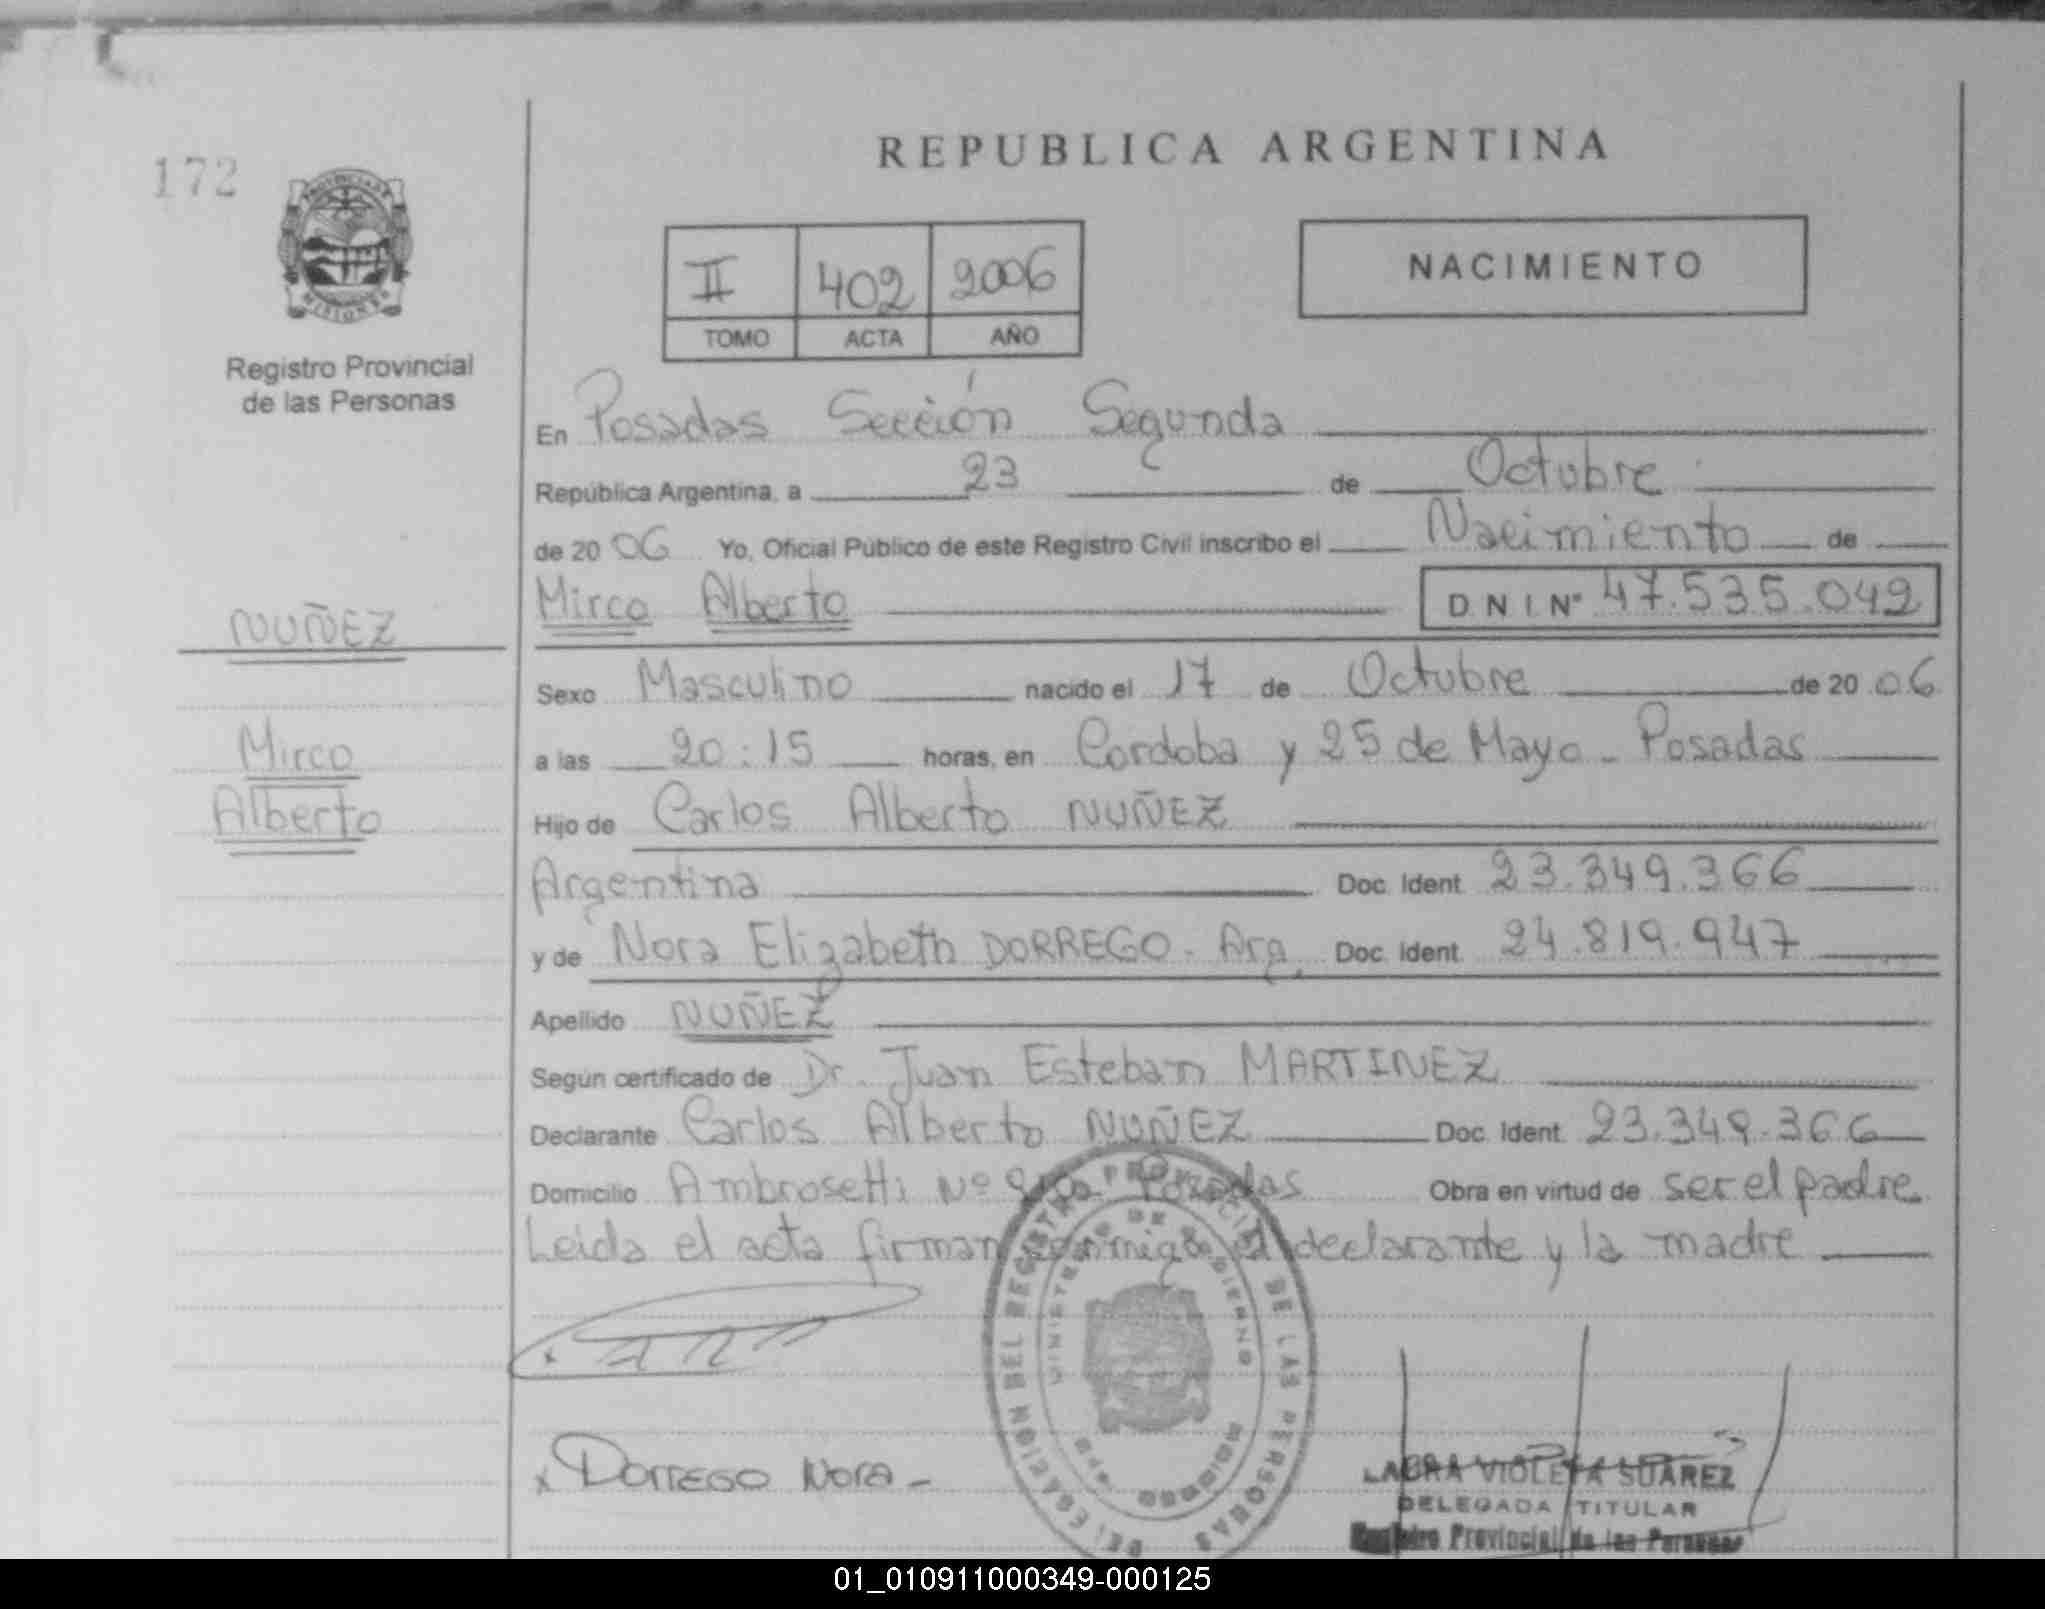 REPUBLICA ARGENTINA
172
PROVINCIA DE MISIONES
Registro Provincial
de las Personas
II 402 2006
TOMO ACTA AÑO
NACIMIENTO
En Posadas Sección Segunda
República Argentina, a 23 de Octubre
de 20 06 Yo, Oficial Público de este Registro Civil inscribo el Nacimiento de
Mirco Alberto D.N.I.Nº 47.535.049
NUÑEZ
Mirco
Alberto
Sexo Masculino nacido el 17 de Octubre de 20 06
a las 20:15 horas, en Cordoba y 25 de Mayo - Posadas
Hijo de Carlos Alberto NUÑEZ
Argentina Doc. Ident. 23.349.366
y de Nora Elizabeth DORREGO - Arg. Doc. Ident. 24.819.947
Apellido NUÑEZ
Según certificado de Dr. Juan Esteban MARTINEZ
Declarante Carlos Alberto NUÑEZ Doc. Ident. 23.349.366
Domicilio Ambrosetti Nº Posadas Obra en virtud de ser el padre.
Leida el acta firman conmigo el declarante y la madre
DELEGACION DEL REGISTRO PROVINCIAL DE LAS PERSONAS
MINISTERIO DE GOBIERNO
x
x DORREGO Nora -
LAURA VIOLETA SUAREZ
DELEGADA TITULAR
Registro Provincial de las Personas
01_010911000349-000125